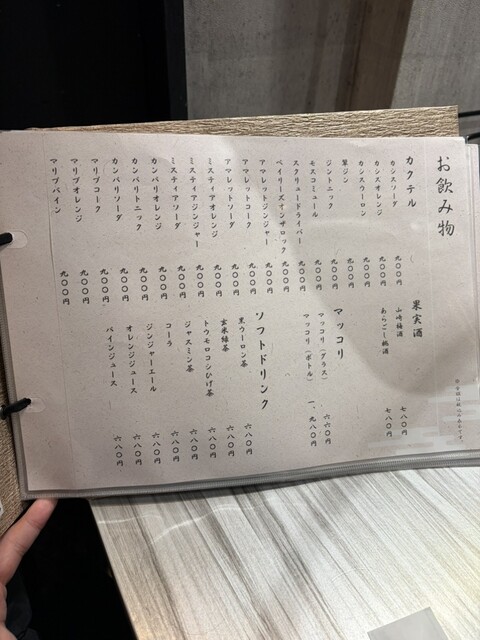 お飲み物
カクテル
カシスソーダ 九〇〇円
カシスオレンジ 九〇〇円
カシスウーロン 九〇〇円
翠ジン 九〇〇円
ジントニック 九〇〇円
モスコミュール 九〇〇円
スクリュードライバー 九〇〇円
ベイリーズオンザロック 九〇〇円
アマレットジンジャー 九〇〇円
アマレットコーク 九〇〇円
アマレットソーダ 九〇〇円
ミスティアオレンジ 九〇〇円
ミスティアジンジャー 九〇〇円
ミスティアソーダ 九〇〇円
カンパリオレンジ 九〇〇円
カンパリトニック 九〇〇円
カンパリソーダ 九〇〇円
マリブコーク 九〇〇円
マリブオレンジ 九〇〇円
マリブパイン 九〇〇円
果実酒
山崎梅酒 七八〇円
あらごし桃酒 七八〇円
マッコリ
マッコリ（グラス） 六六〇円
マッコリ（ボトル） 一、九八〇円
ソフトドリンク
黒ウーロン茶 六八〇円
玄米緑茶 六八〇円
トウモロコシひげ茶 六八〇円
ジャスミン茶 六八〇円
コーラ 六八〇円
ジンジャーエール 六八〇円
オレンジジュース 六八〇円
パインジュース 六八〇円